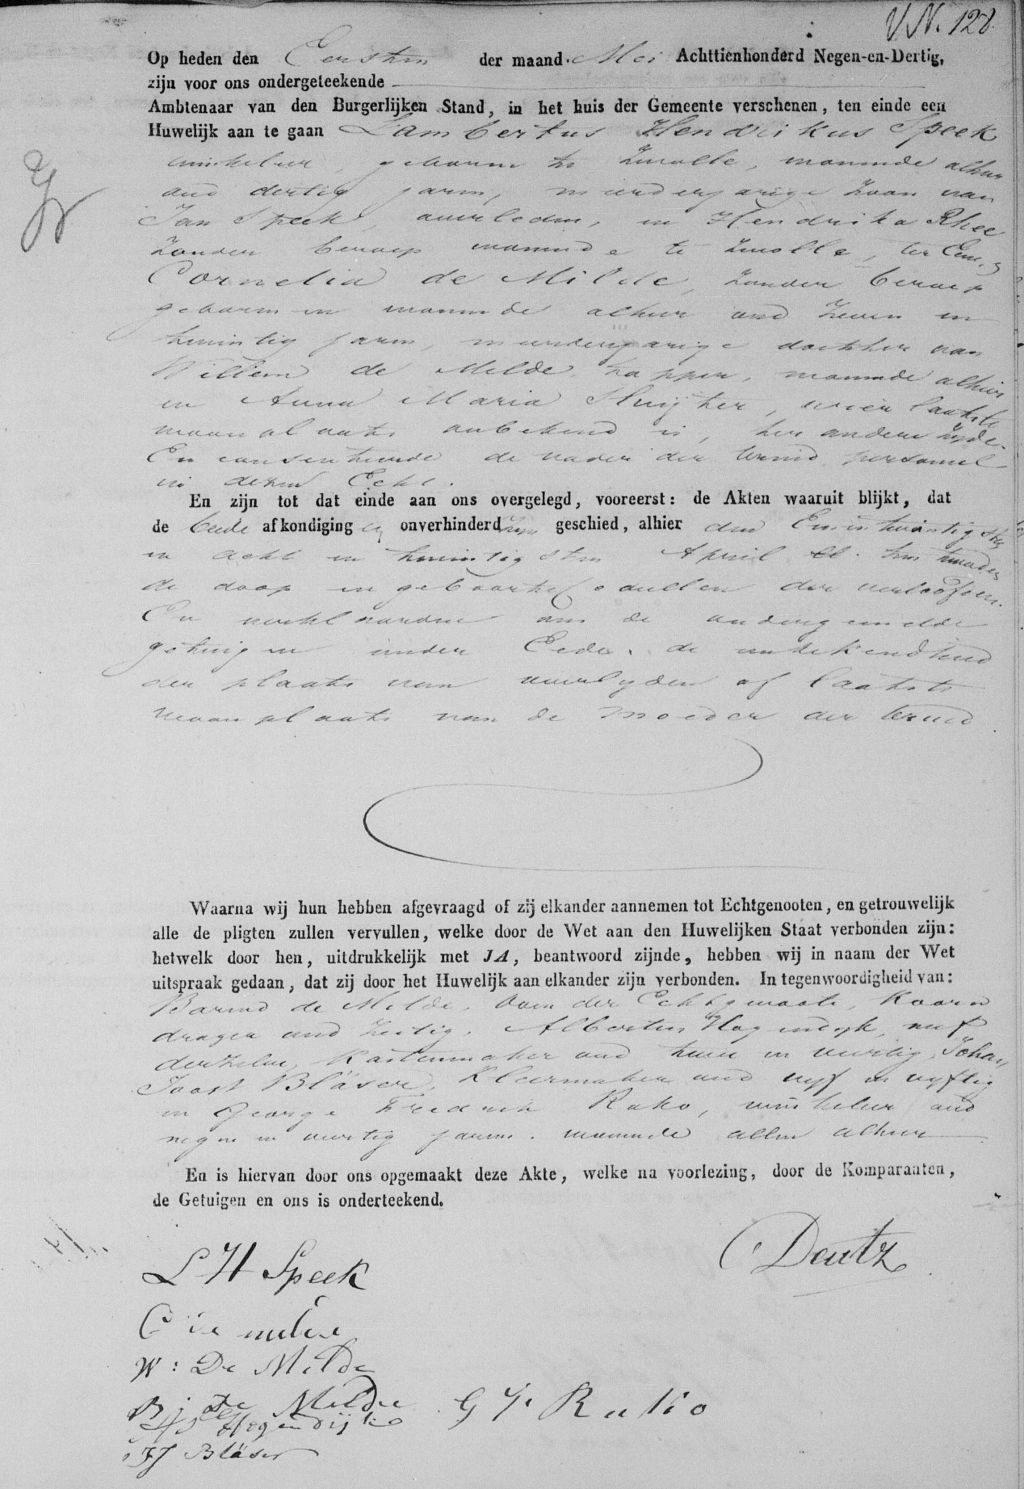 V N. 128.
Op heden den Eersten der maand Mei Achttienhonderd Negen-en-Dertig,
zijn voor ons ondergeteekende
Ambtenaar van den Burgerlijken Stand, in het huis der Gemeente verschenen, ten einde een
Huwelijk aan te gaan Lambertus Hendrikus Speek
winkelier, geboren te Zwolle, wonende alhier
oud dertig jaren, meerderjarige zoon van
Jan Speek, overleden, en Hendrika Rhee
zonder beroep wonende te Zwolle, ter Eenre
Cornelia de Milde, zonder beroep
geboren en wonende alhier oud zeven en
twintig jaren, meerderjarige dochter van
Willem de Milde, tapper, wonende alhier
en Anna Maria, wier laatste
woonplaats onbekend is, ter andere zijde.
En consenteerde de vader der bruid personeel
in dezen Echt.
En zijn tot dat einde aan ons overgelegd, vooreerst: de Akten waaruit blijkt, dat
de beide afkondiging en onverhinderd zijn geschied, alhier den Een en twintigsten
en acht en twintigsten April ll. ten tweede
de doop en geboorte cedullen der verloofden.
En verklaarden ons de ondergemelde
getuigen onder Eede, de onbekendheid
der plaats van overlyden of laatste
woonplaats van de moeder der bruid
Waarna wij hun hebben afgevraagd of zij elkander aannemen tot Echtgenooten, en getrouwelijk
alle de pligten zullen vervullen, welke door de Wet aan den Huwelijken Staat verbonden zijn:
hetwelk door hen, uitdrukkelijk met JA, beantwoord zijnde, hebben wij in naam der Wet
uitspraak gedaan, dat zij door het Huwelijk aan elkander zijn verbonden. In tegenwoordigheid van:
Barend de Milde, oom der Echtgenoote, Koorn
drager oud zestig, Albertus Hogendyk, neef
derzelve, Kastenmaker oud twee en veertig, Johan
Joost Bläser, Kleermaker oud vyf en vyftig
en George Fredrik Ruko, winkelier oud
negen en veertig jaren. wonende allen alhier
En is hiervan door ons opgemaakt deze Akte, welke na voorlezing, door de Komparanten,
de Getuigen en ons is onderteekend.
Deutz
L H Speek
C de milde
W: De Milde
B de Milde
Hogendijk
G F Ruko
J J Bläser